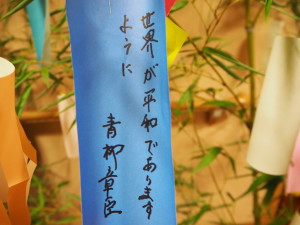 世界が平和であります
ように
青柳章臣